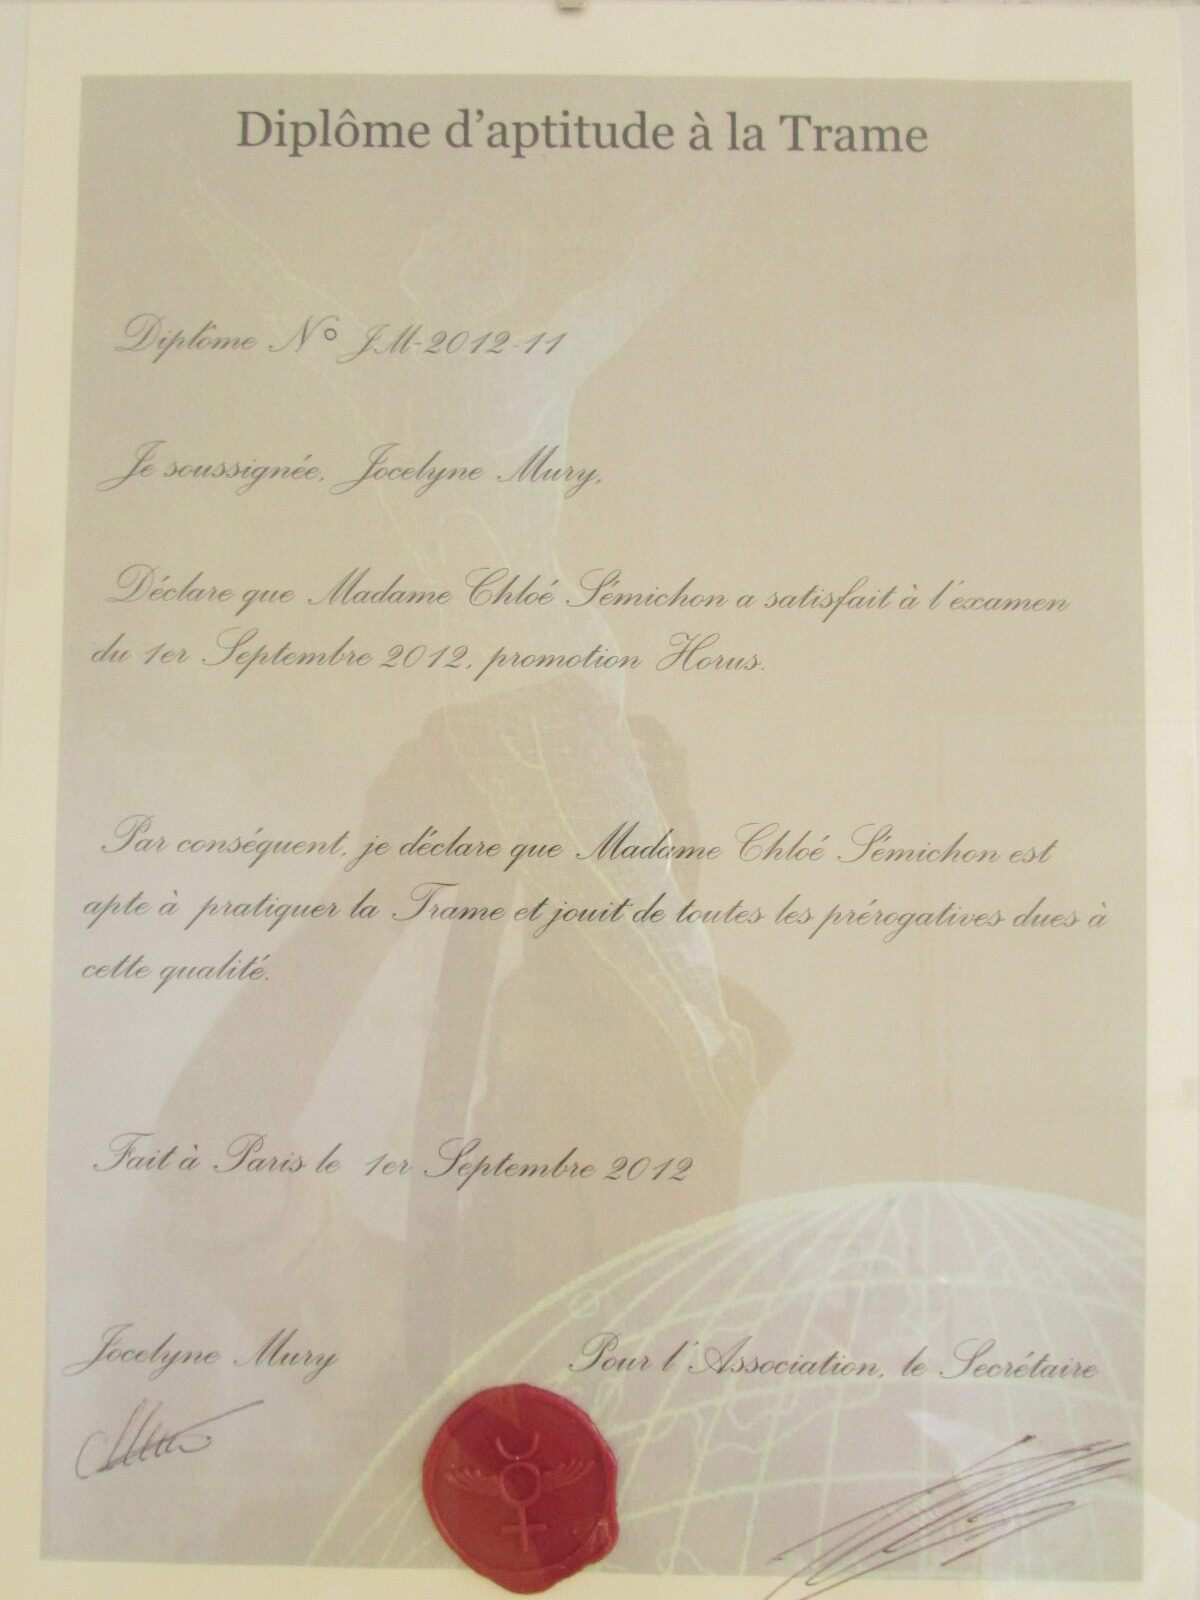 Diplôme d'aptitude à la Trame
Diplôme N° JM-2012-11
Je soussignée, Jocelyne Mury,
Déclare que Madame Chloé Sémichon a satisfait à l'examen
du 1er Septembre 2012, promotion Horus.
Par conséquent, je déclare que Madame Chloé Sémichon est
apte à pratiquer la Trame et jouit de toutes les prérogatives dues à
cette qualité.
Fait à Paris le 1er Septembre 2012
Jocelyne Mury
Pour l'Association, le Secrétaire